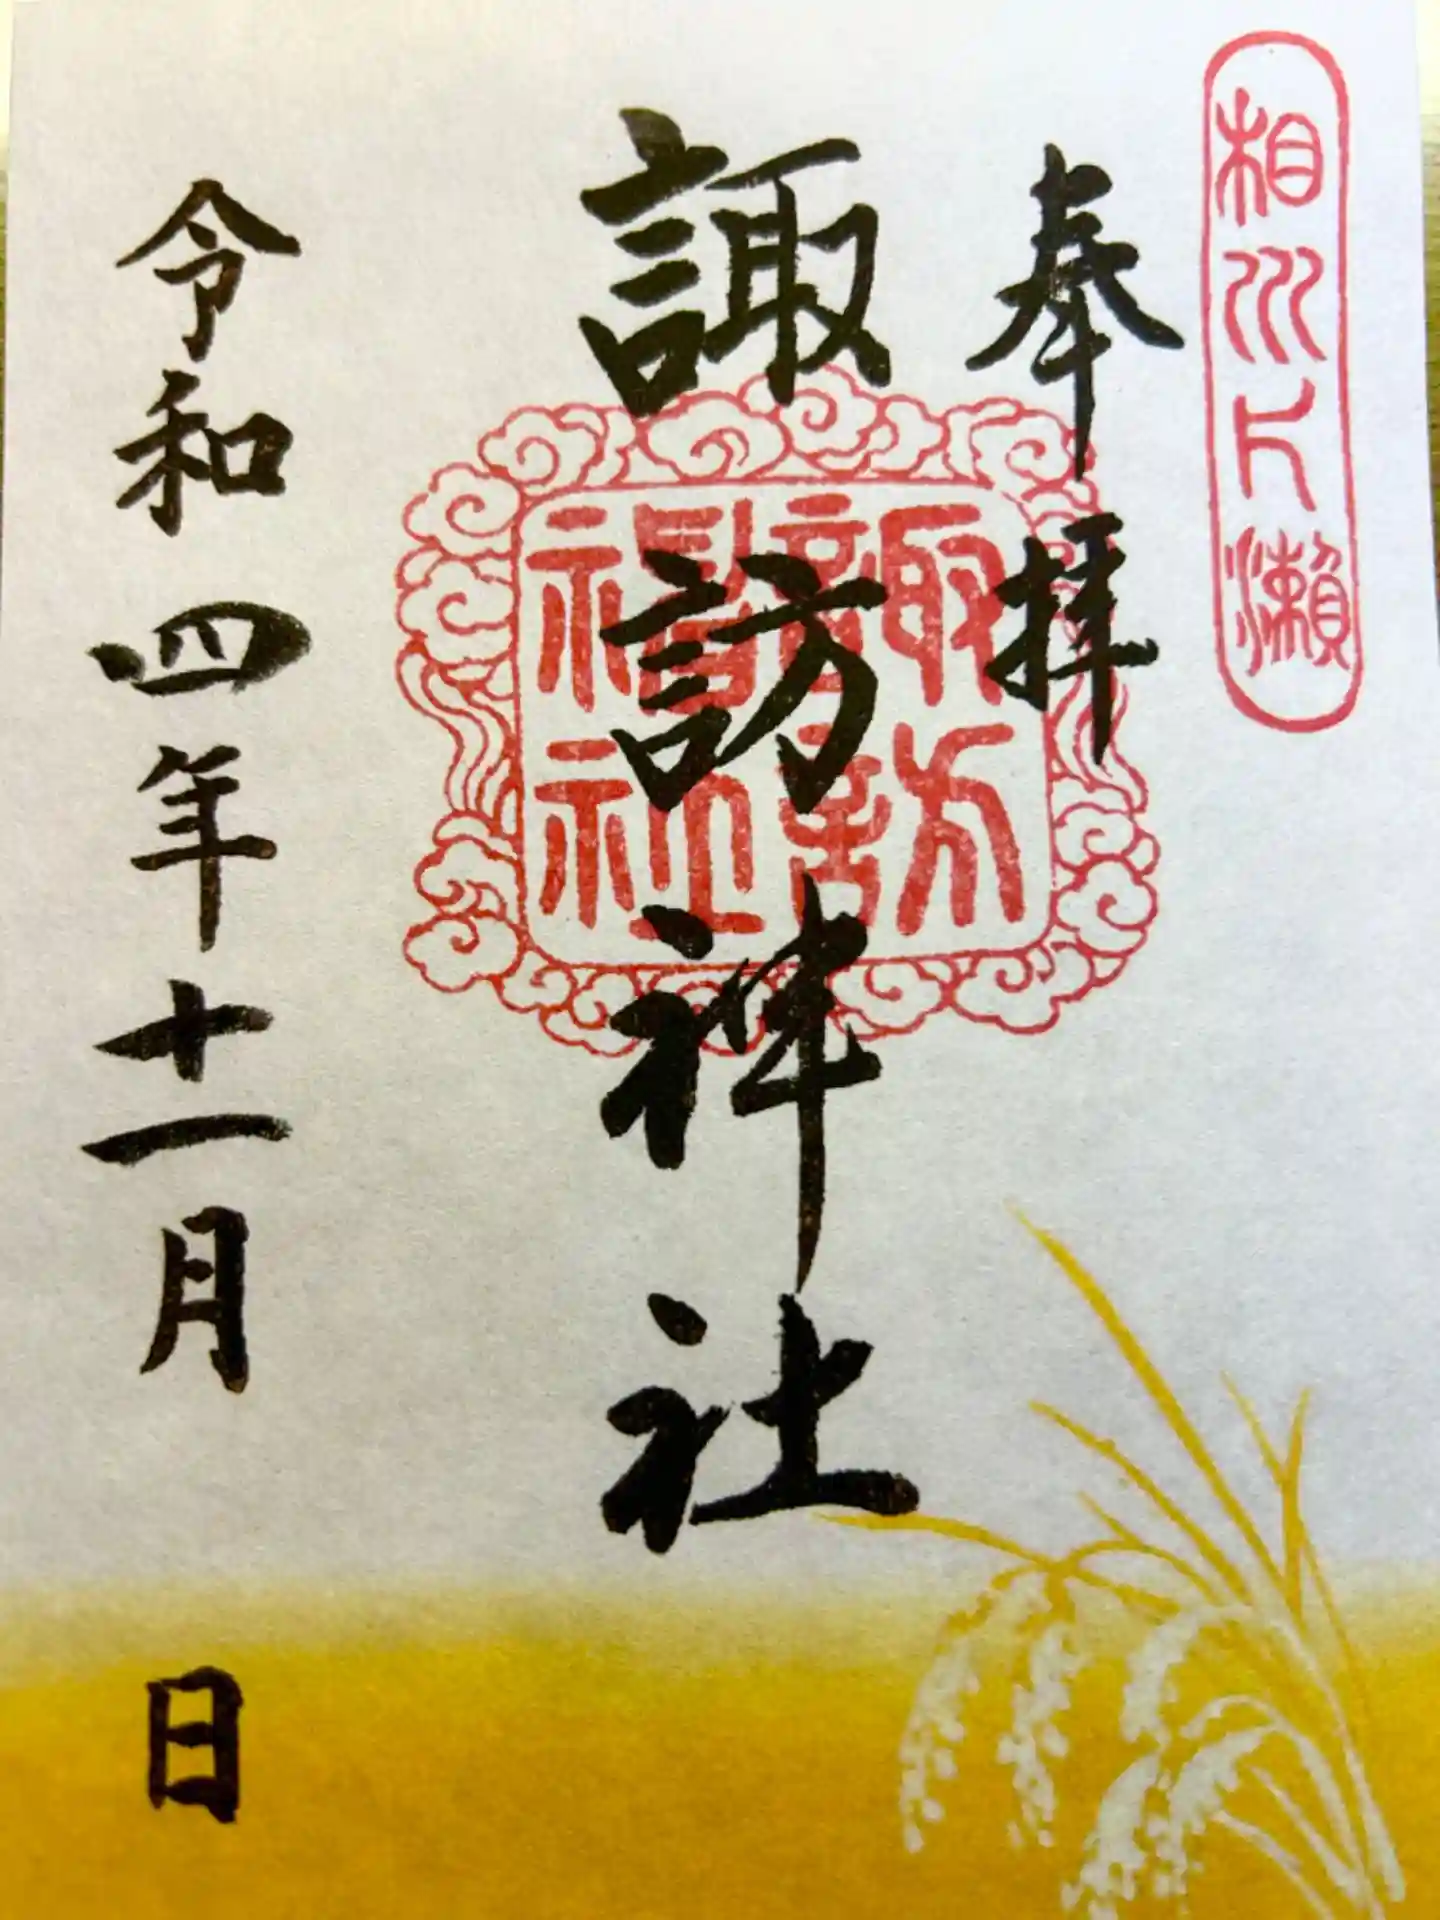 相州片瀬
奉拝
諏訪神社
諏訪
神社
令和四年十一月 日